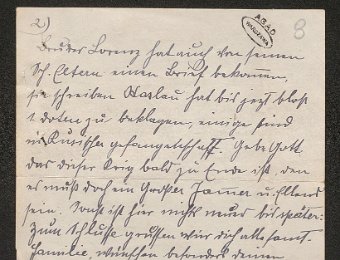 2)
AGAD
WARSZAWA
8
Bruder Lorenz hat auch von seinen
Sch. Eltern einen Brief bekommen,
sie schreiben Haslau hat bis jezt blos
1 doten zu beklagen, einige sind
in Rusischer gefangenschaft. Gebe Gott
das dieser Krig bald zu Ende ist, den
es muß doch ein Großer Jamer u. Ellend
sein. Sonst ist hier nichts neues bis später.
Zum Schlusse grüssen wir dich alle samt
Familie, wünschen besonders deinen